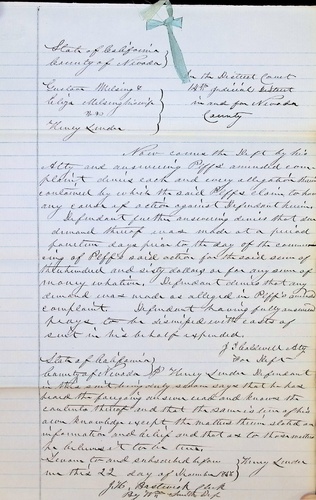 State of California
County of Nevada
In the District Court
14th Judicial District
in and for Nevada
County
Gustav Milsing &
Eliza Milsing
vs
Henry Linder
Now comes the Deft by his
Atty and answering Plffs amended com-
plaint denies each and every allegation therein
contained by which the said Plffs claim to have
any cause of action against Defendant herein.
Defendant further answering denies that due
demand thereof was made at a period
fourteen days prior to the day of the commenc-
ing of Plffs said action for the said sum of
three hundred and sixty dollars or for any sum of
money whatever. Defendant denies that any
demand was made as alleged in Plffs amended
complaint. Defendant having fully answered
prays to be dismissed with costs of
suit in his behalf expended.
J Caldwell Atty
For Deft
State of California
County of Nevada SS Henry Linder Defendant
in this suit being duly sworn says that he has
heard the foregoing answer read and knows the
contents thereof and that the same is true of his
own knowledge except the matters therein stated on
information and belief and that as to those matters
he believes it to be true.
Sworn to and subscribed before
me this 22 day of November
Henry Linder
J.H. Bostwick Clerk
By Wm Smith Dep